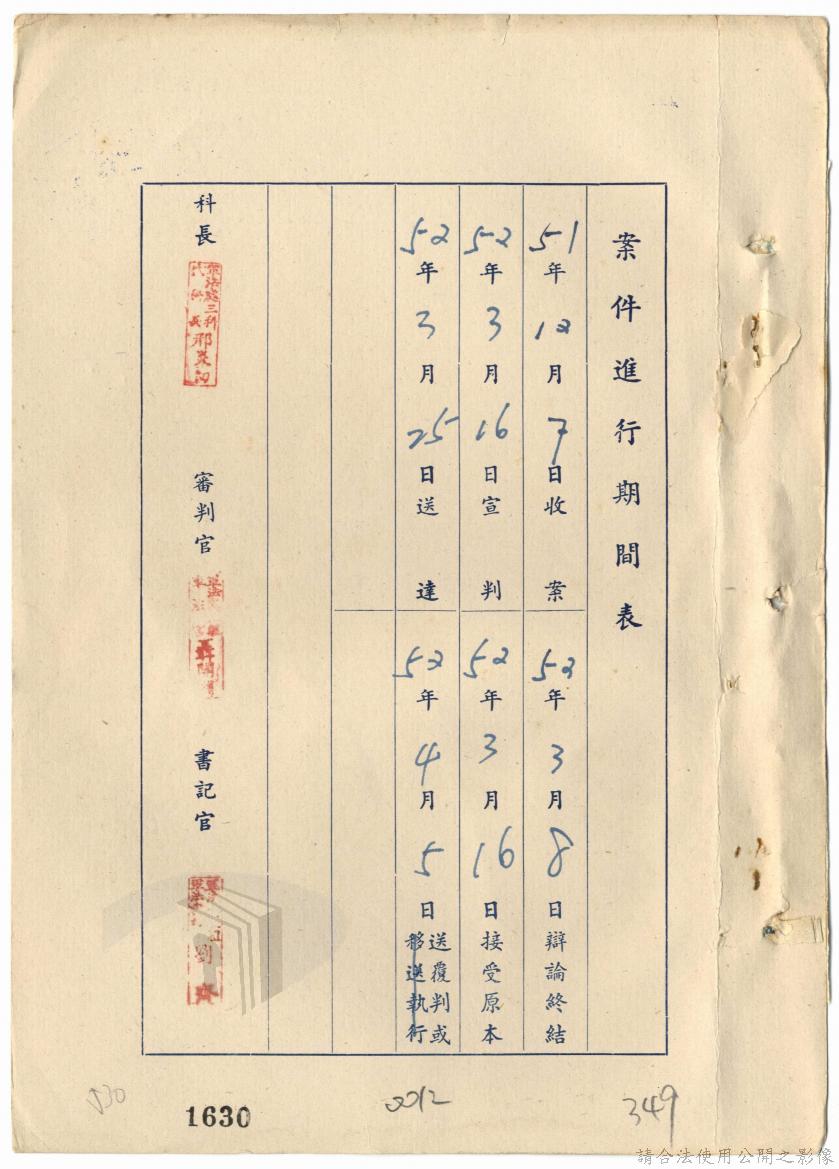 案件進行期間表
51年12月7日收案
52年3月8日辯論終結
52年3月16日宣判
52年3月16日接受原本
52年3月25日送達
52年4月5日送覆判或
移送執行
科長
審判官
書記官
劉
1630
0012
349
530
請合法使用公開之影像